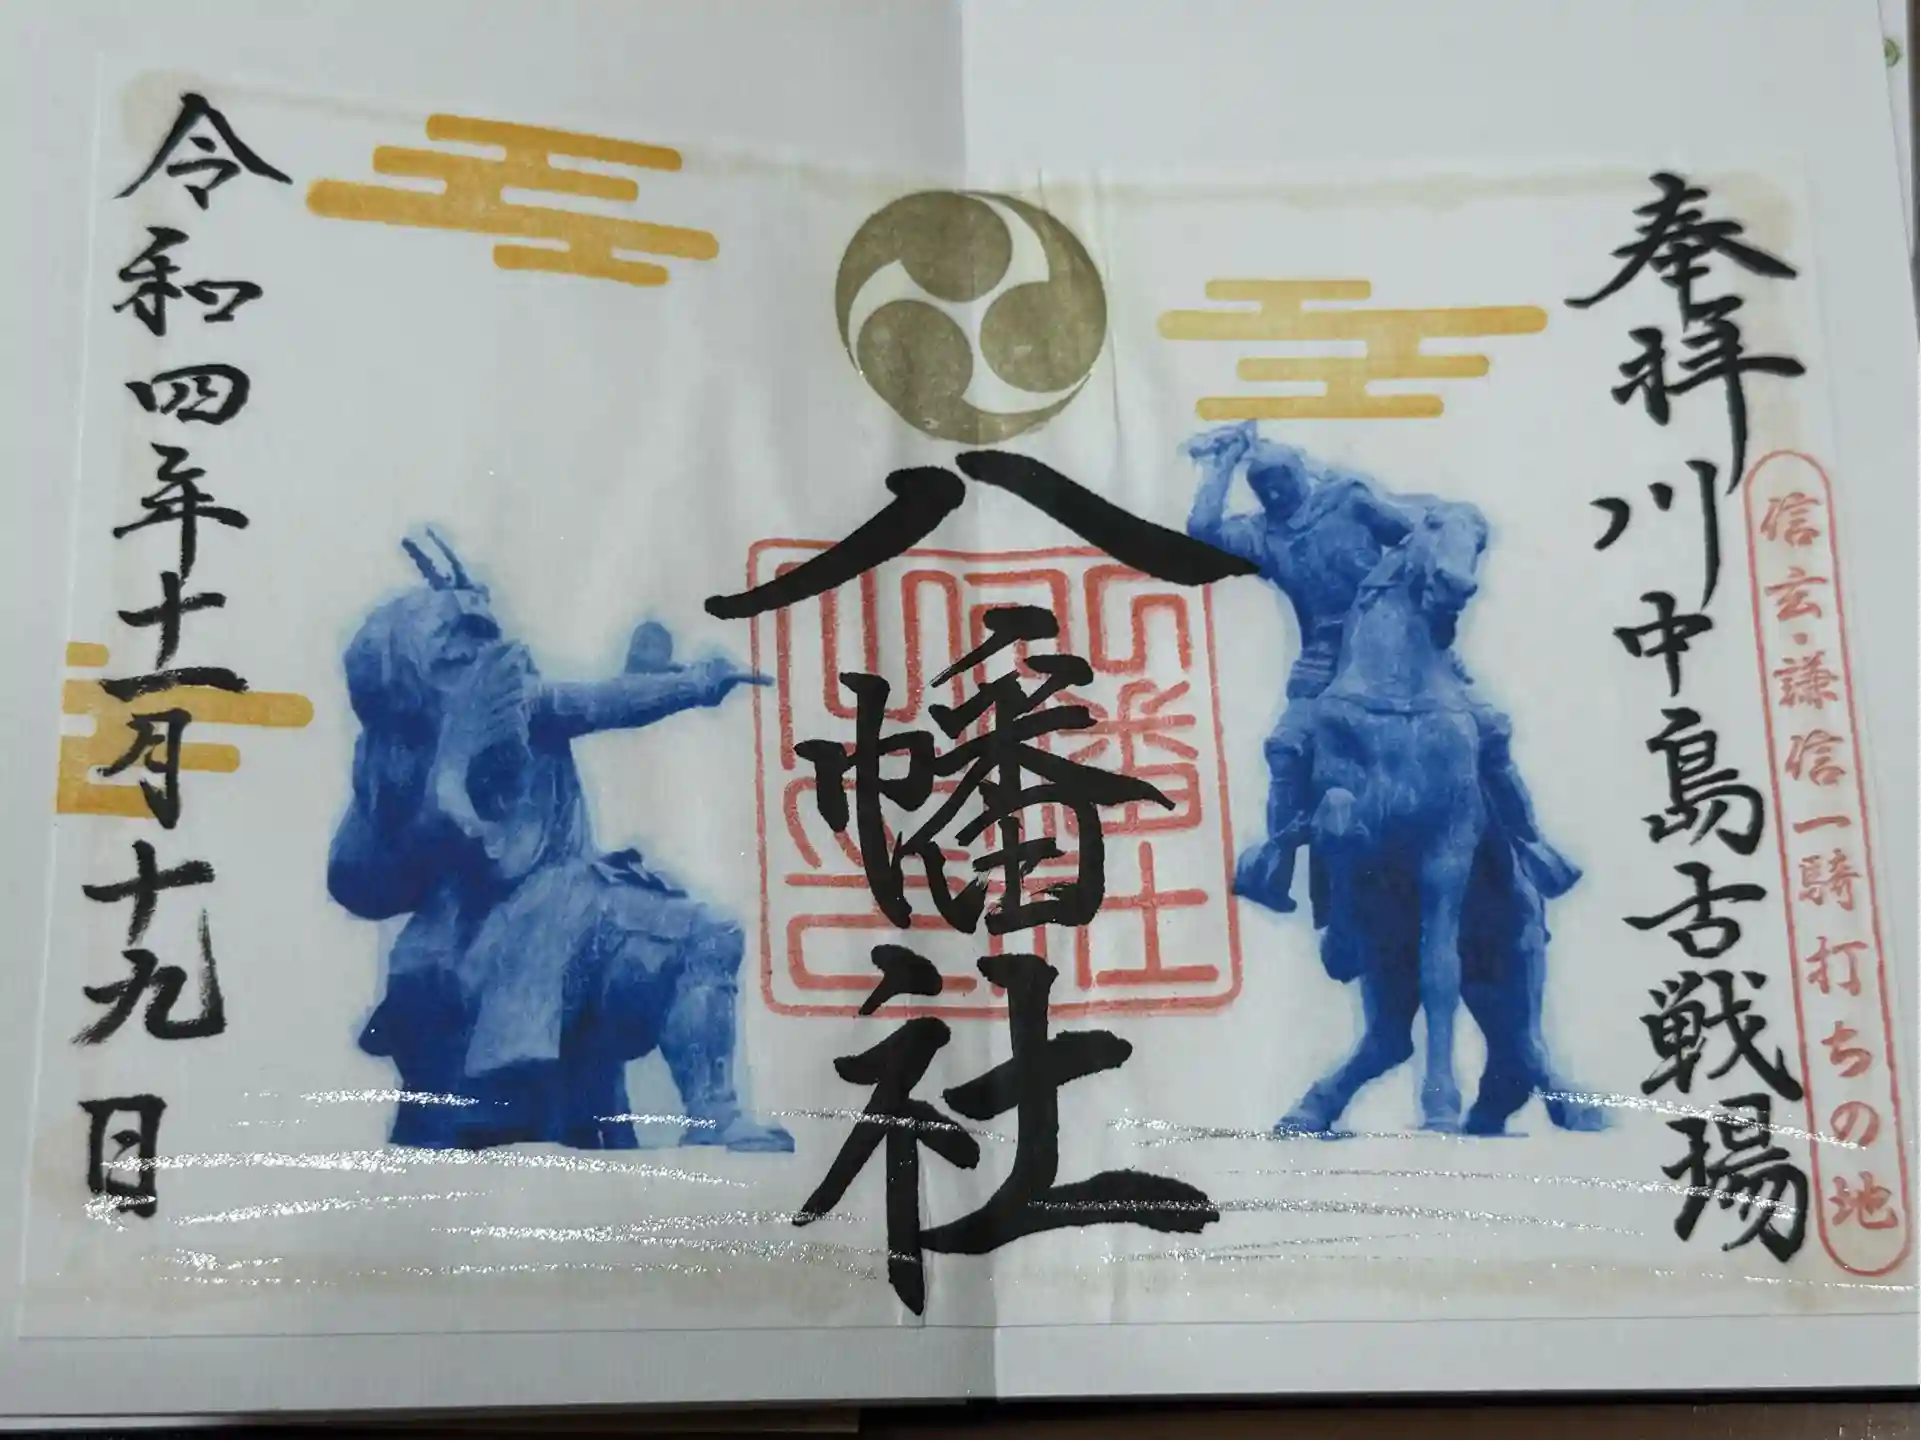 奉拝 川中島古戦場
信玄・謙信一騎打ちの地
八幡社
令和四年十一月十九日